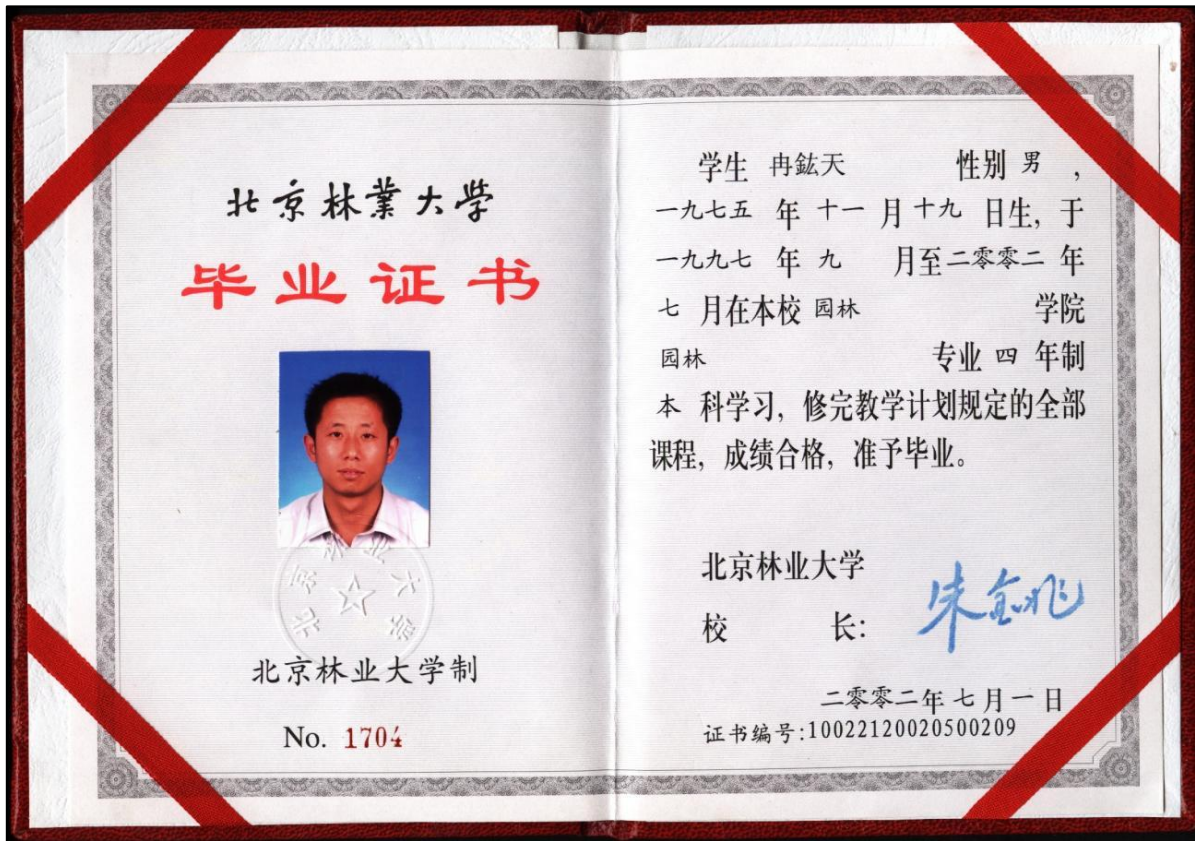 北京林業大学
毕业证书
北京林业大学
北京林业大学制
No. 1704
学生 冉鈜天 性别 男 ,
一九七五 年 十一 月 十九 日生, 于
一九九七 年 九 月至 二零零二 年
七 月在本校 园林 学院
园林 专业 四 年制
本 科学习, 修完教学计划规定的全部
课程, 成绩合格, 准予毕业。
北京林业大学
校 长: 朱金兆
二零零二年 七 月 一 日
证书编号:10022120020500209